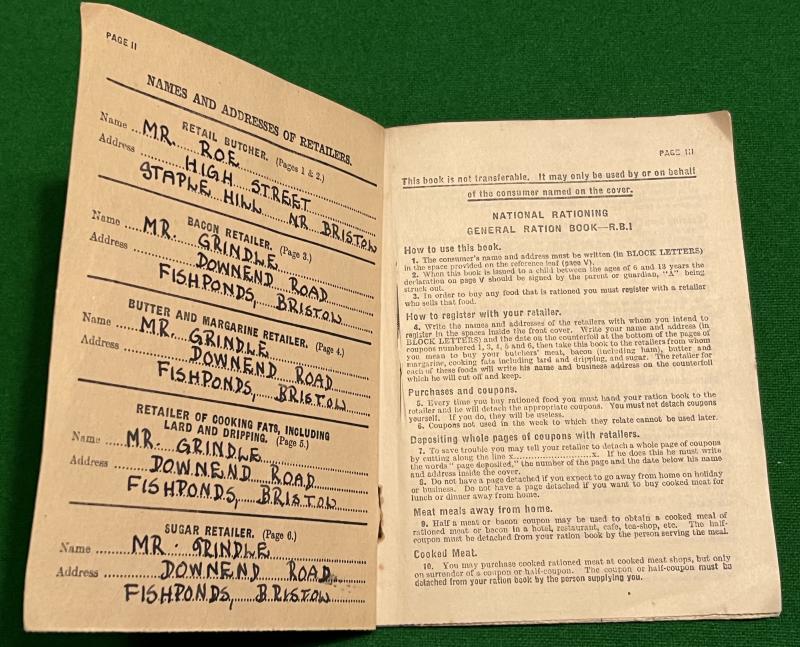 PAGE II
NAMES AND ADDRESSES OF RETAILERS.
RETAIL BUTCHER. (Pages 1 & 2.)
Name MR. ROE
Address HIGH STREET
STAPLE HILL NR BRISTOW
BACON RETAILER. (Page 3.)
Name MR. GRINDLE
Address DOWNEND ROAD
FISHPONDS, BRISTOW
BUTTER AND MARGARINE RETAILER. (Page 4.)
Name MR. GRINDLE
Address DOWNEND ROAD
FISHPONDS, BRISTOW
RETAILER OF COOKING FATS, INCLUDING
LARD AND DRIPPING. (Page 5.)
Name MR. GRINDLE
Address DOWNEND ROAD
FISHPONDS, BRISTOW
SUGAR RETAILER. (Page 6.)
Name MR. GRINDLE
Address DOWNEND ROAD
FISHPONDS, BRISTOW
PAGE III
This book is not transferable. It may only be used by or on behalf
of the consumer named on the cover.
NATIONAL RATIONING
GENERAL RATION BOOK—R.B.1
How to use this book.
1. The consumer's name and address must be written (in BLOCK LETTERS)
in the space provided on the reference leaf (page V).
2. When this book is issued to a child between the ages of 6 and 13 years the
declaration on page V should be signed by the parent or guardian, "A" being
struck out.
3. In order to buy any food that is rationed you must register with a retailer
who sells that food.
How to register with your retailer.
4. Write the names and addresses of the retailers with whom you intend to
register in the spaces inside the front cover. Write your name and address (in
BLOCK LETTERS) and the date on the counterfoil at the bottom of the pages of
coupons numbered 1, 3, 4, 5 and 6, then take this book to the retailers from whom
you mean to buy your butchers' meat, bacon (including ham), butter and
margarine, cooking fats including lard and dripping, and sugar. The retailer for
each of these foods will write his name and business address on the counterfoil
which he will cut off and keep.
Purchases and coupons.
5. Every time you buy rationed food you must hand your ration book to the
retailer and he will detach the appropriate coupons. You must not detach coupons
yourself. If you do, they will be useless.
6. Coupons not used in the week to which they relate cannot be used later.
Depositing whole pages of coupons with retailers.
7. To save trouble you may tell your retailer to detach a whole page of coupons
by cutting along the line x....................x. If he does this he must write
the words "page deposited," the number of the page and the date below his name
and address inside the cover.
8. Do not have a page detached if you expect to go away from home on holiday
or business. Do not have a page detached if you want to buy cooked meat for
lunch or dinner away from home.
Meat meals away from home.
9. Half a meat or bacon coupon may be used to obtain a cooked meal of
rationed meat or bacon in a hotel, restaurant, cafe, tea-shop, etc. The half-
coupon must be detached from your ration book by the person serving the meal.
Cooked Meat.
10. You may purchase cooked rationed meat at cooked meat shops, but only
on surrender of a coupon or half-coupon. The coupon or half-coupon must be
detached from your ration book by the person supplying you.